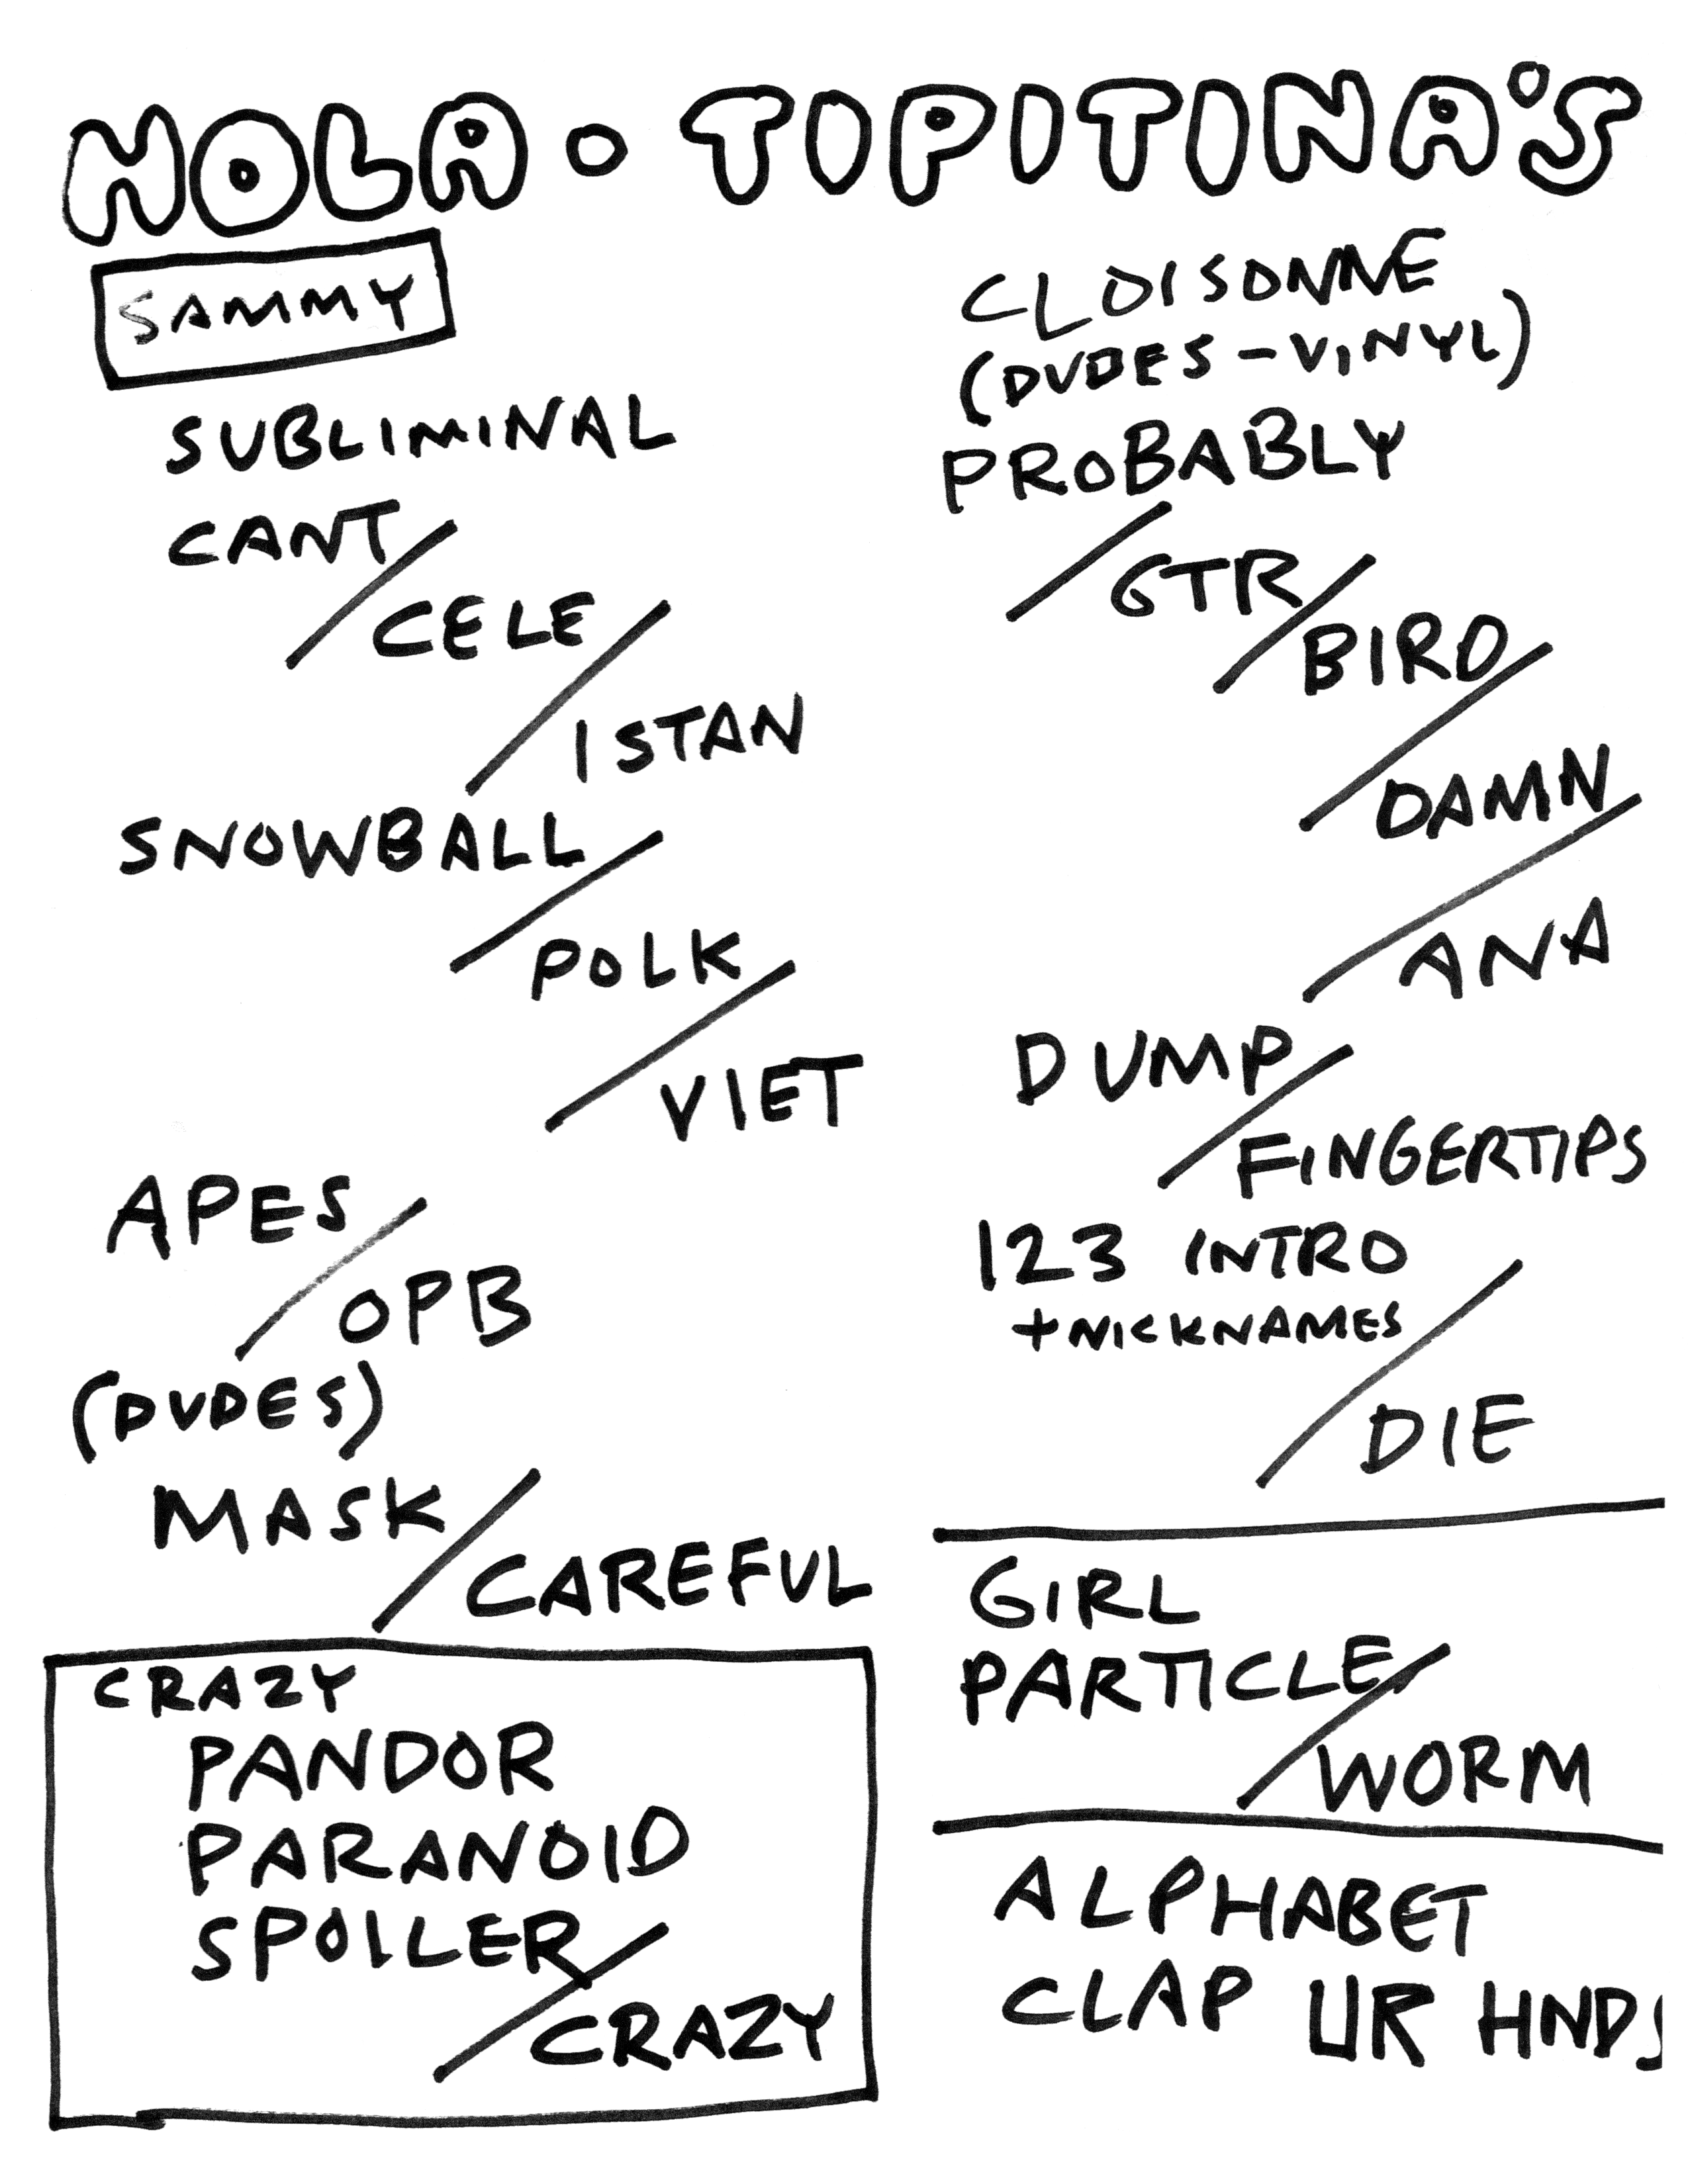 NOLA · TIPITINA'S
SAMMY
SUBLIMINAL
CANT/
CELE/
ISTAN
SNOWBALL/
POLK/
VIET
APES/
OPB
(DUDES)
MASK/
CAREFUL
CRAZY
PANDOR
PARANOID
SPOILER/
CRAZY
CLOISONNE
(DUDES - VINYL)
PROBABLY
/GTR/
BIRD/
DAMN/
ANA
DUMP/
FINGERTIPS
123 INTRO
+NICKNAMES/
DIE
GIRL
PARTICLE/
WORM
ALPHABET
CLAP UR HNDS